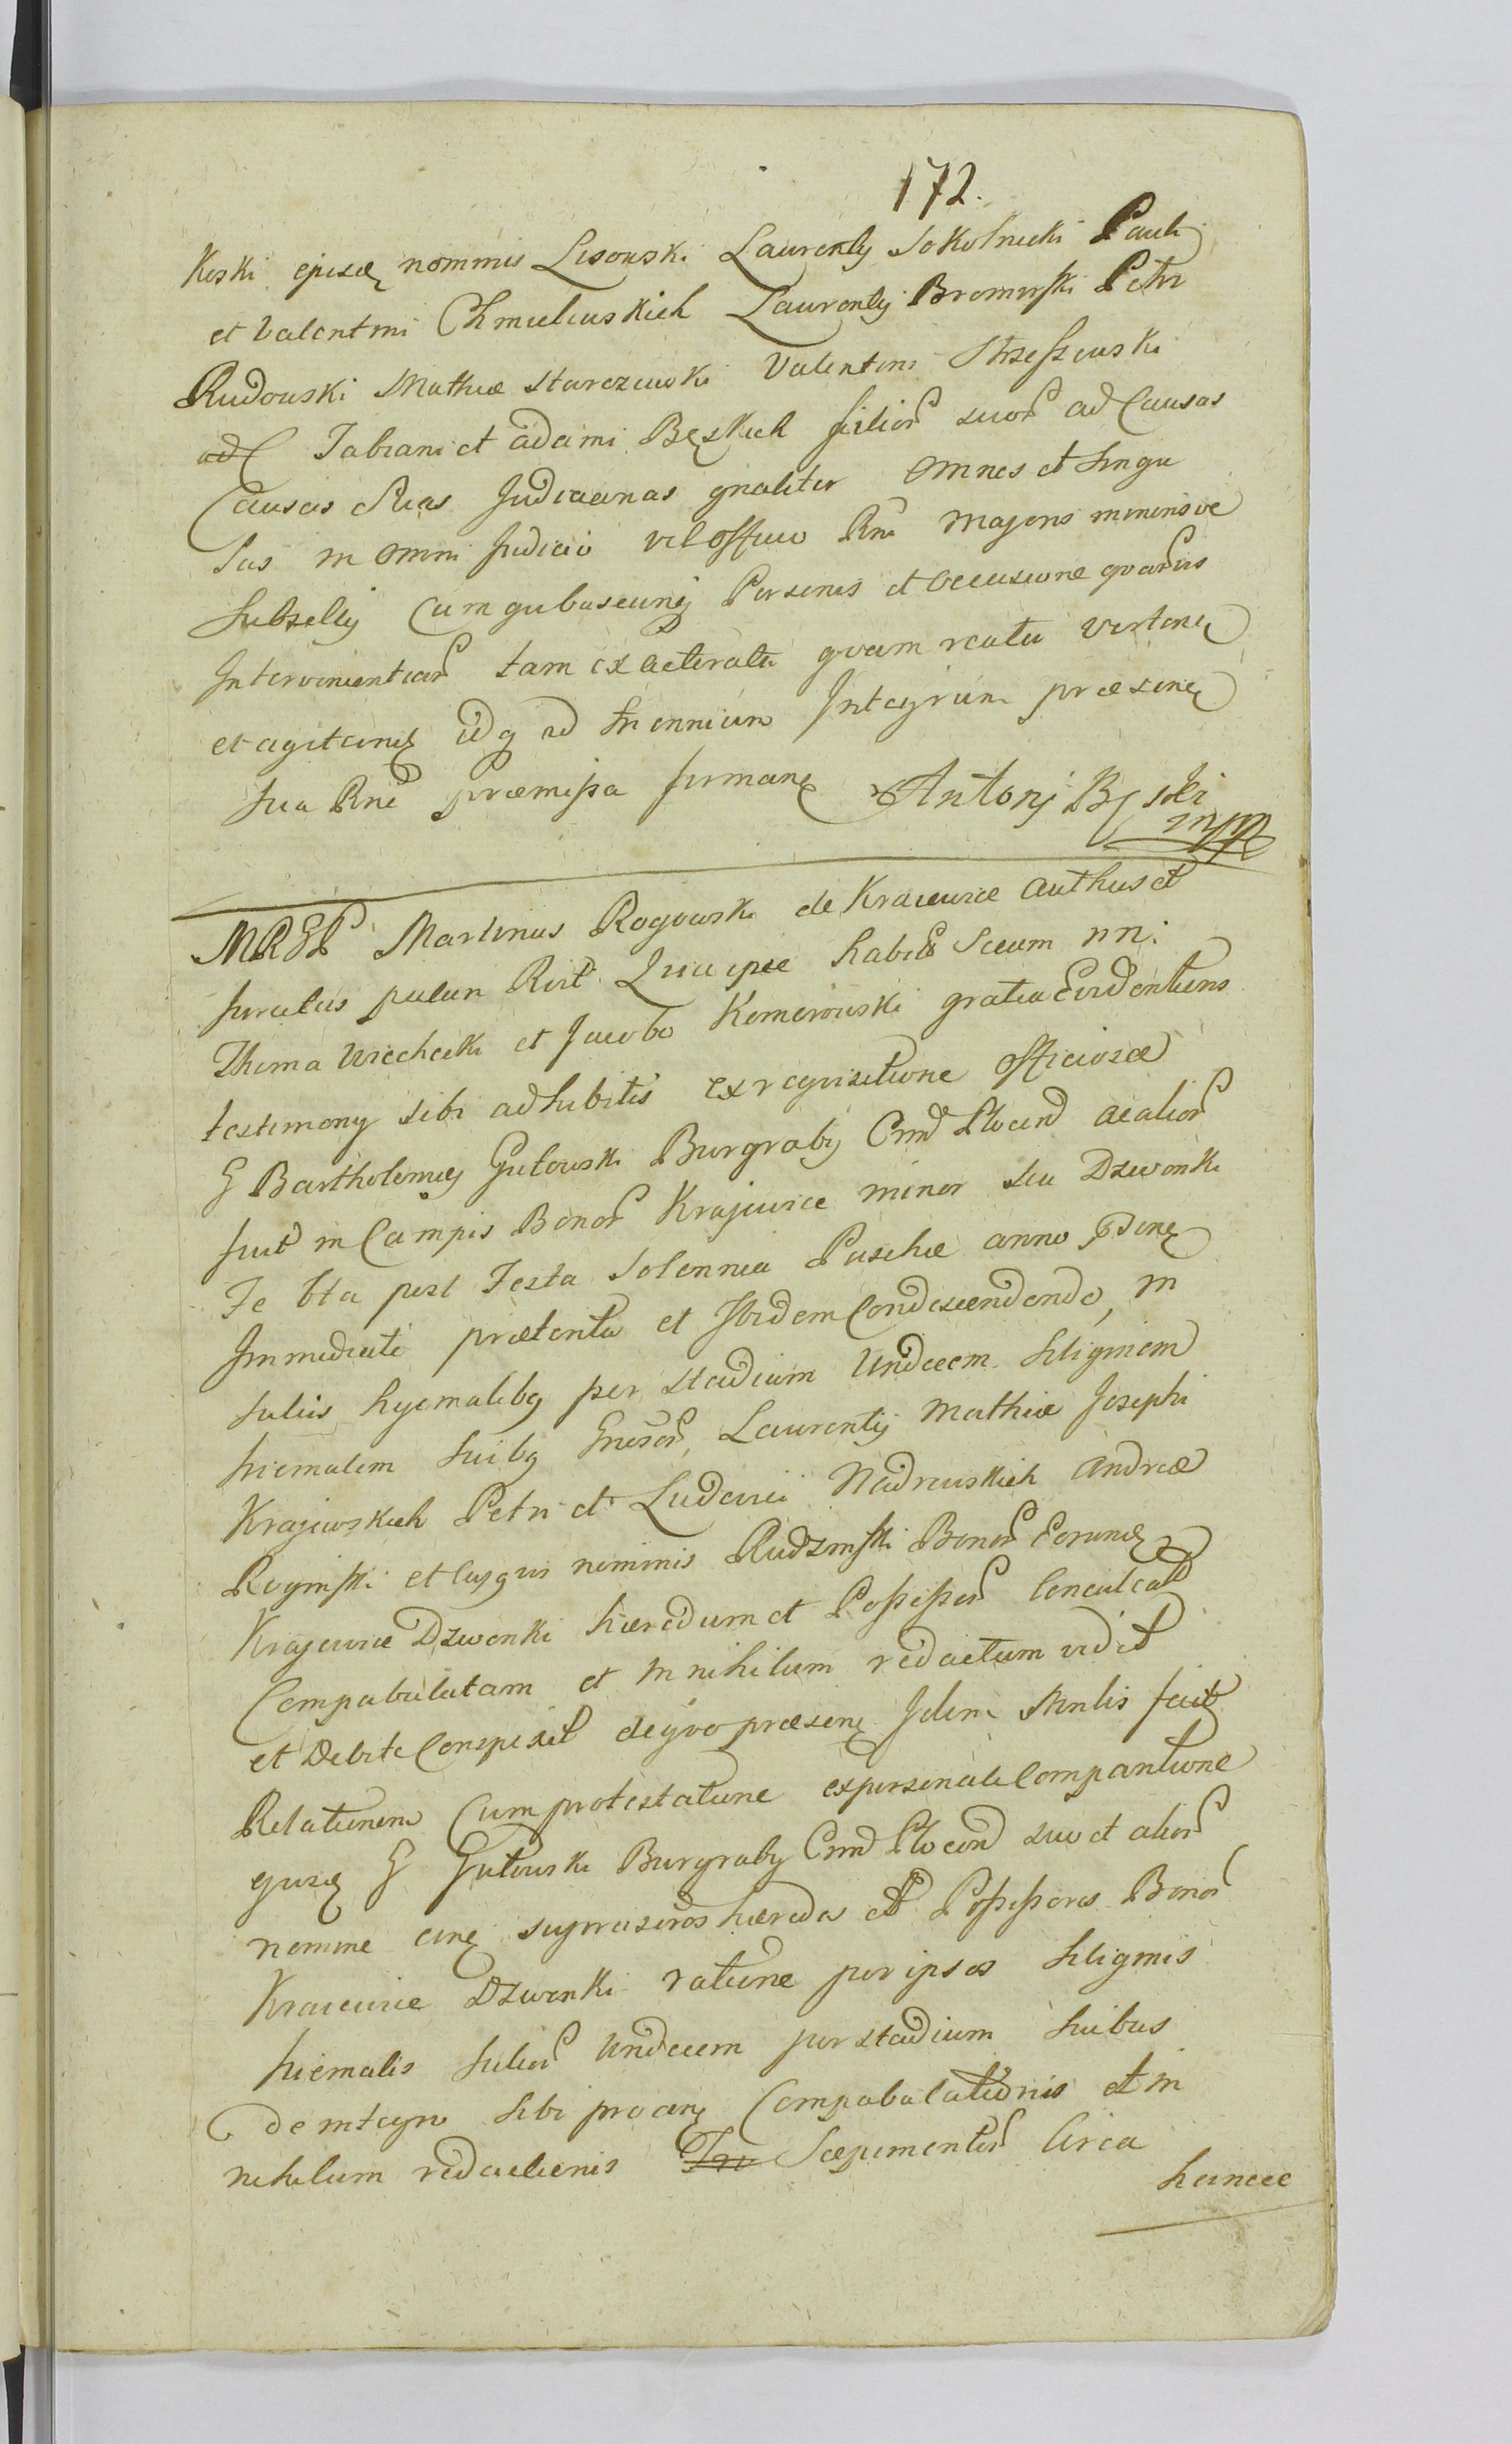 172.
Keski ejusdꝫ nominis Lisowski Laurentÿ Sokolnicki Pauli
et Valentini Chmielewskich Laurentÿ Bromirski Petri
Rudowski Mathiæ Starczewski Valentini Strzeszewski
Fabiani et adami Bęskich filior suor ad Causas
Causas Suas Judiciarias gnaliter Omnes et Singu
las in omni Judicio vel officio Rni Majoris minorisve
Subsellÿ Cum quibuscunqꝫ Personis et occasione quarvis
Intervenientiar tam ex acteratu quam reatu verten
et agitan idqꝫ ad triennium Integrum præsen
sua Rne præmissa firman Antoni Bęski
mpp
MRGL Martinus Rogowski de Kraiewice authus et
Juratus palam Rert. Quia ipse habito Secum nn:
Thoma Wiechecki et Jacobo Komorowski gratia Evidentioris
testimony sibi adhibitis ex requisitione officiosa
G Bartholomÿ Gutowski Burgraby Crmd Plocend ac alior
fuit in Campis Bonor Krajewice minor seu Dzwonki
Fe 6ta post Festa Solennia Paschæ anno Psen
Immediate præterita et Ibidem Condescendendo, in
Sulcis hyemalibꝫ per stadium Undecem Siliginem
hiemalem suibꝫ Gnosor, Laurentÿ Mathiæ Josephi
Krajewskich Petri et Ludovici Nadrowskich Andreæ
Roginski et Cujqvis nominis Rudzinski Bonor Eorund
Krajewice Dzwonki hæredum et Possessor Conculcat
Compabulatam et in nihilum redactum vidit
et Debite Conspexit de qvo præsen Idem Mnlis facit
Relationem Cum protestatione ex personali Comparitione
ejusd G Gutowski Burgraby Crmd Plocend suo et alior
nomine cin suprascros hæredes et Possessores Bonor
Kraiewice Dzwonki ratione per ipsos Siliginis
hiemalis Sulcor Undecem per stadium suibus
de integro sibi procin Compabulationis et in
nihilum redactionis Sæpimentor Circa
hancce